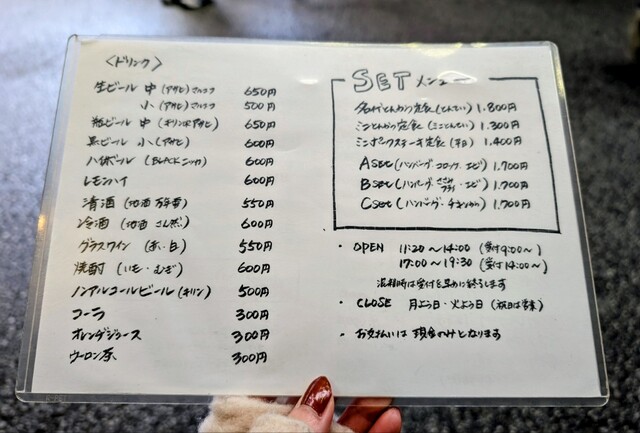 〈ドリンク〉
生ビール 中 (アサヒ)マルエフ 650円
小 (アサヒ)マルエフ 500円
瓶ビール 中 (キリンorアサヒ) 650円
黒ビール 小 (アサヒ) 600円
ハイボール (BLACKニッカ) 600円
レモンハイ 600円
清酒 (地酒) 550円
冷酒 (地酒) 600円
グラスワイン (赤・白) 550円
焼酎 (いも・むぎ) 600円
ノンアルコールビール (キリン) 500円
コーラ 300円
オレンジジュース 300円
ウーロン茶 300円
SETメニュー
名代とんかつ定食(とんてい) 1.800円
ミニとんかつ定食(ミニとんてい) 1.300円
ミニポークステーキ定食 (平日) 1.400円
Aset(ハンバーグ コロッケ エビ) 1.700円
Bset(ハンバーグ・ささみフライ・エビ) 1.700円
Cset(ハンバーグ・チキンカツ) 1.700円
・ OPEN 11:20〜14:00 (受付9:00〜)
17:00〜19:30 (受付14:00〜)
混雑時は受付を早めに終了します
・ CLOSE 月よう日・火よう日 (祝日は営業)
・ お支払いは 現金のみとなります